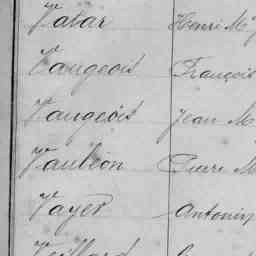 Vatar Henri M
Vaugeois François
Vaugeois Jean M
Vauléon Pierre M
Vayer Antonin
Veillard